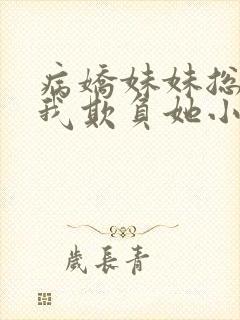 病嬌妹妹總
我欺負她小
歲長青